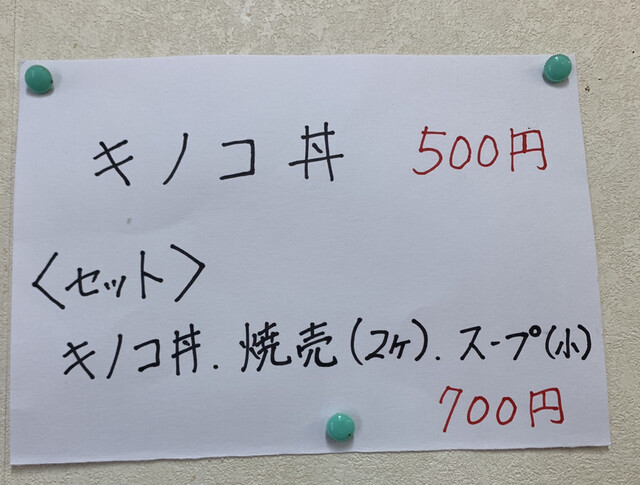 キノコ丼 500円
〈セット〉
キノコ丼.焼売(2ヶ).スープ(小)
700円